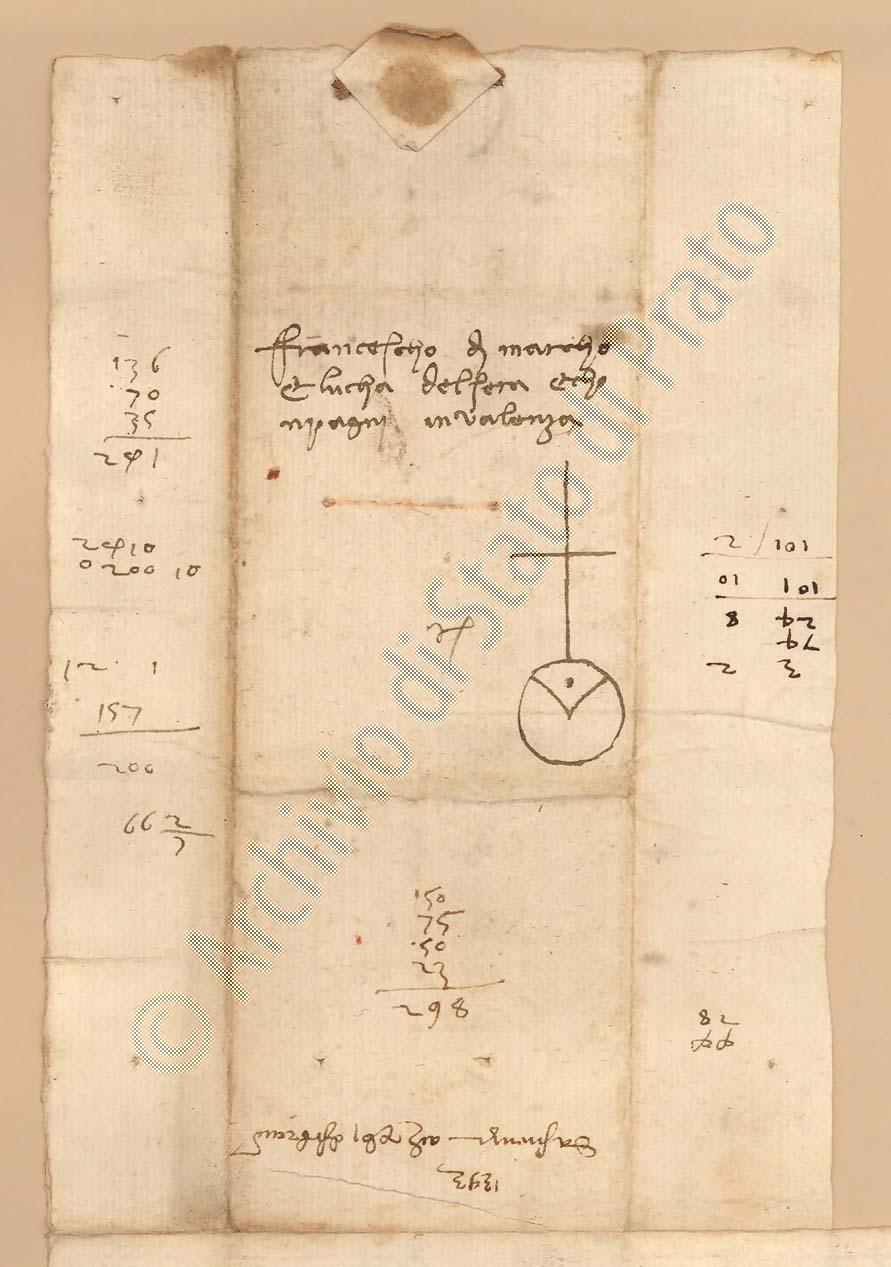 136
70
35
241
2410
0 200 10
12 1
157
200
66 2/3
francescho di marcho
et lucha del sera e cho
npagni in valenza
150
75
50
23
298
2 101
10 101
8
2 3
82
44
1393
© Archivio di Stato di Prato